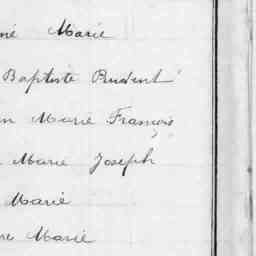 né Marie
Baptiste Prudent
n Marie François
Marie Joseph
Marie
re Marie